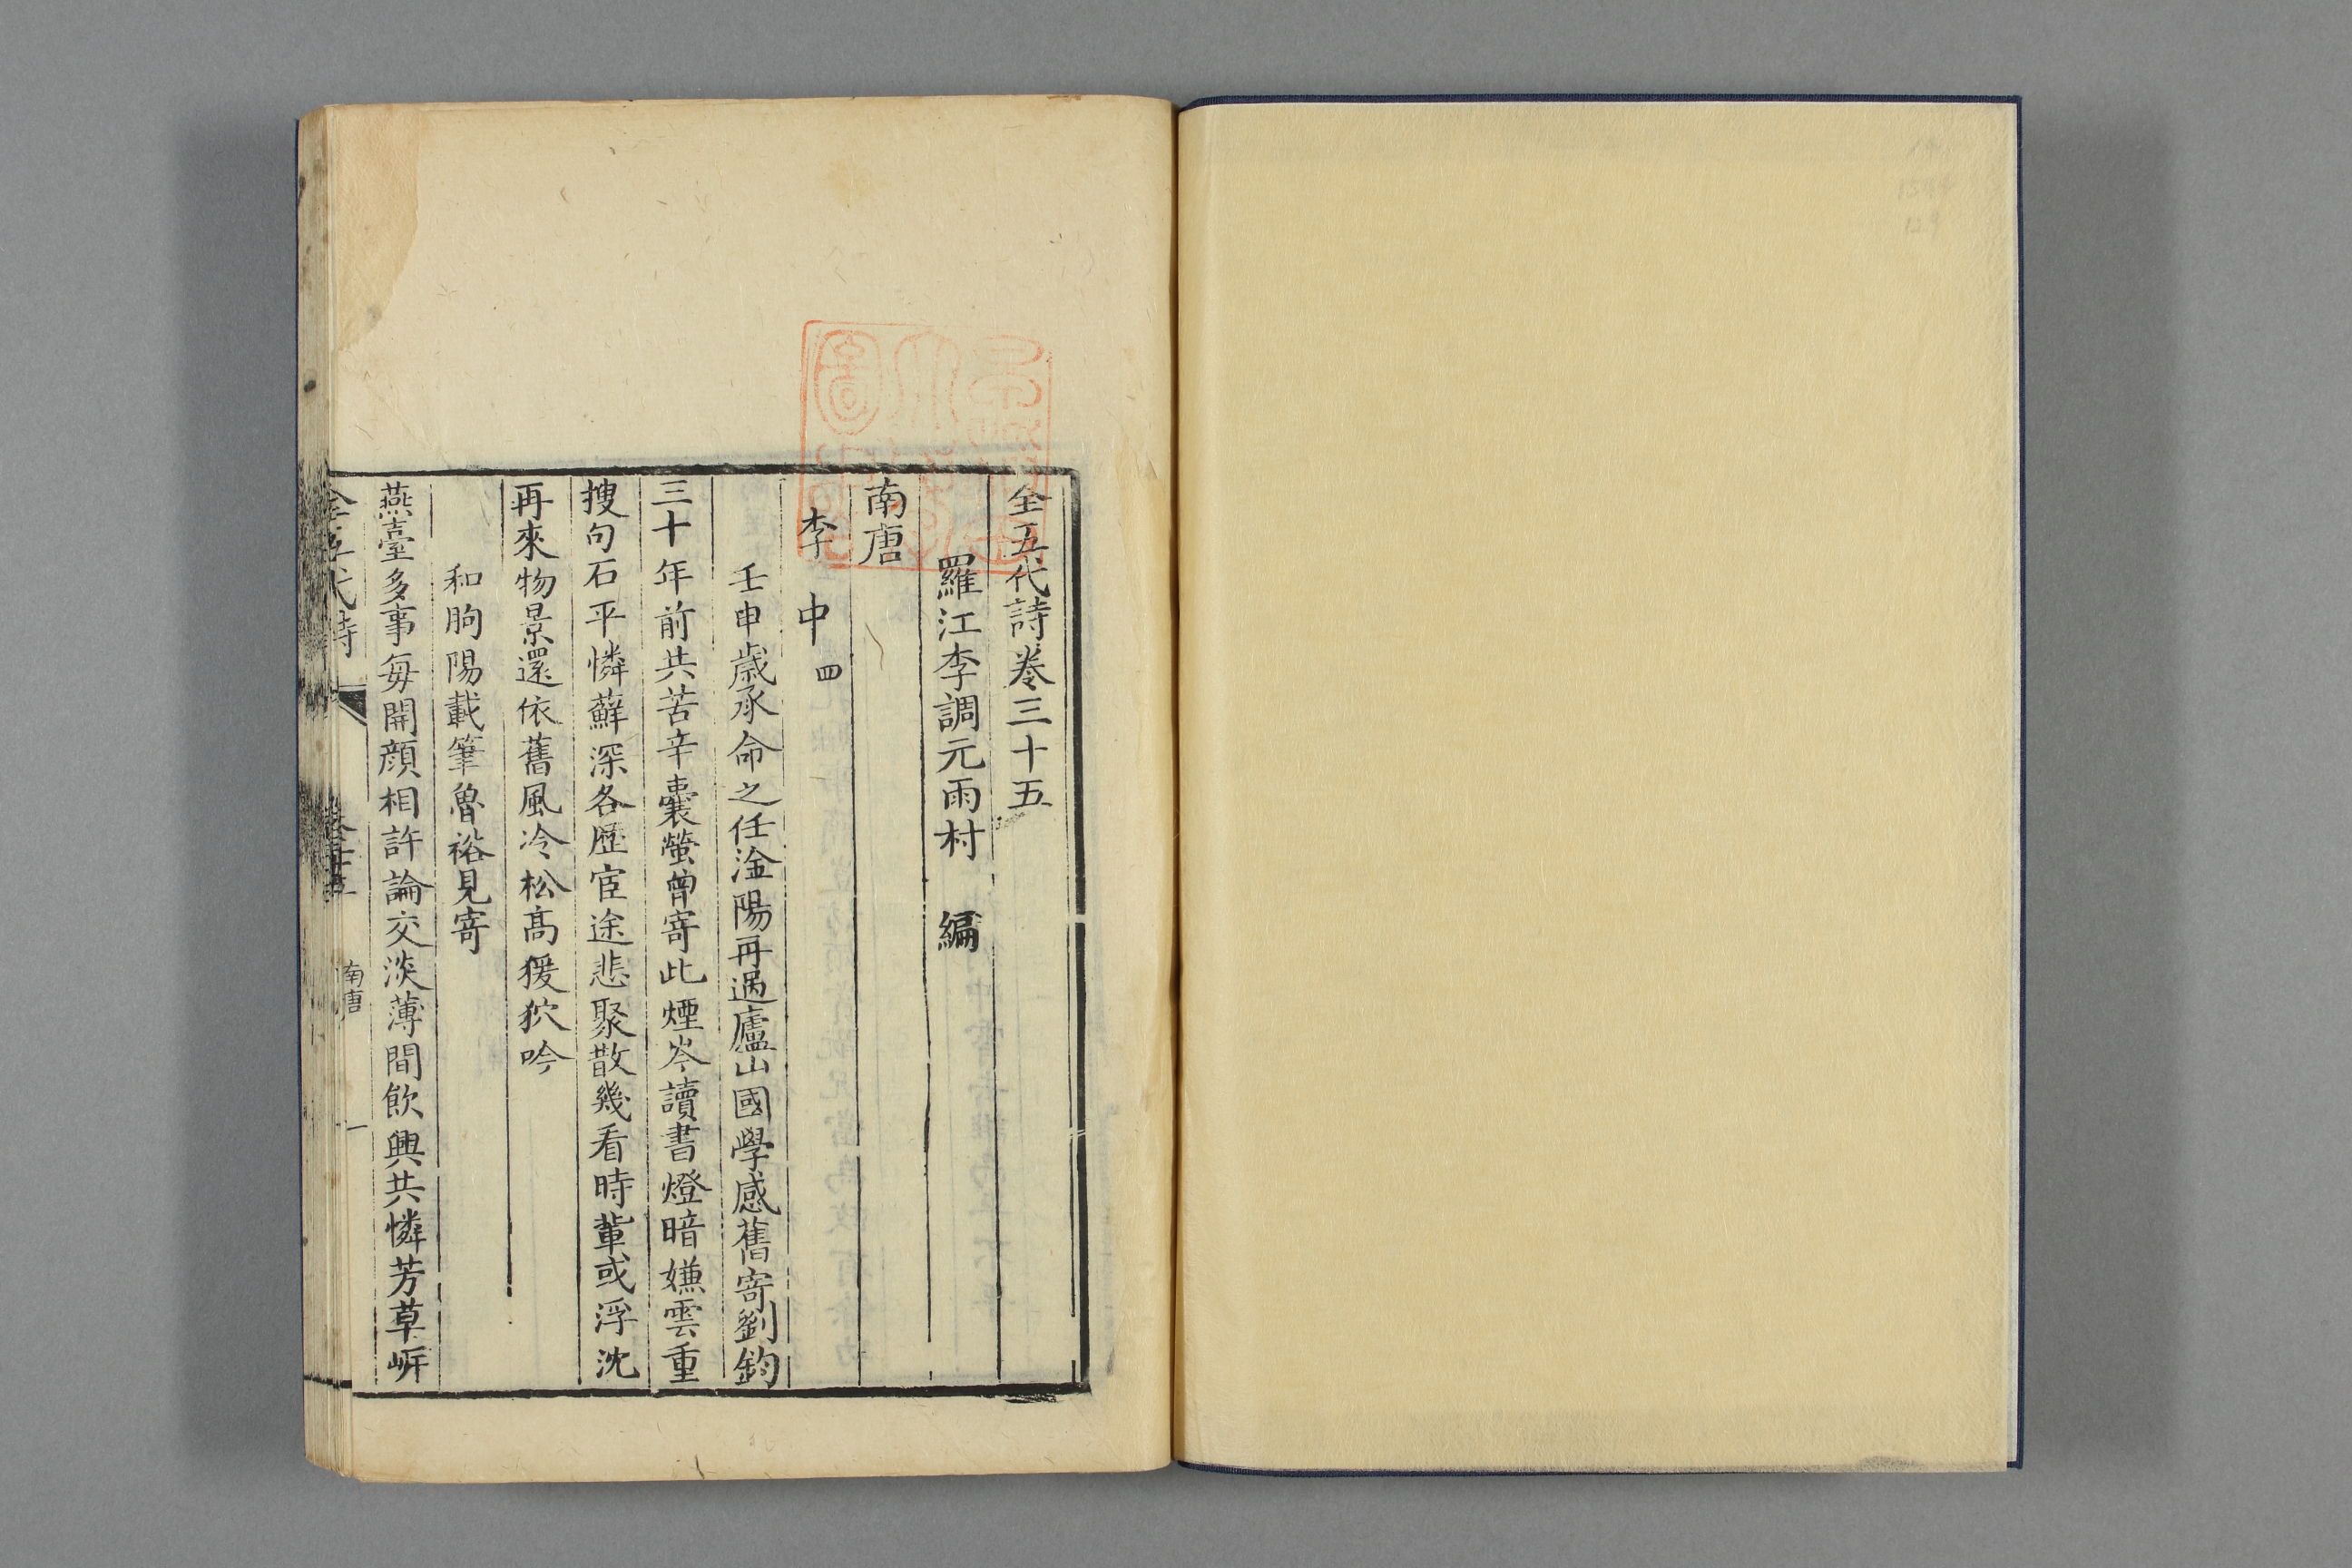 全五代詩卷三十五
羅江李調元雨村　編
南唐
李　中四
壬申歲承命之任淦陽再過廬山國學感舊寄劉鈞
三十年前共苦辛囊螢曾寄此煙岑讀書燈暗嫌雲重
搜句石平憐蘚深各歷宦途悲聚散幾看時輩或浮沈
再來物景還依舊風冷松高猨狖吟
和朐陽載筆魯裕見寄
燕臺多事每開顏相許論交淡薄間飲興共憐芳草岍
全五代詩
南唐
一